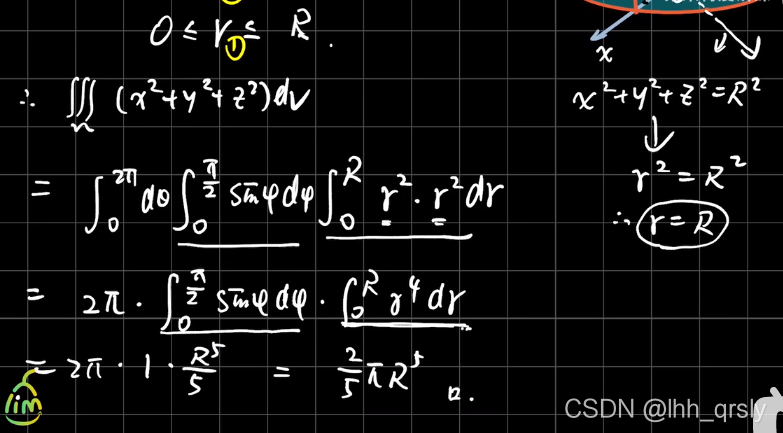 0 ≤ r ≤ R.
①
∴ ∭Ω (x²+y²+z²)dv
= ∫₀^{2π} dθ ∫₀^{π/2} sinφdφ ∫₀^R r²·r²dr
= 2π · ∫₀^{π/2} sinφdφ · ∫₀^R r⁴dr
= 2π · 1 · R⁵/5 = 2/5 πR⁵
x
x²+y²+z²=R²
r²=R²
∴ r=R
lim
CSDN @lhh_qrsly